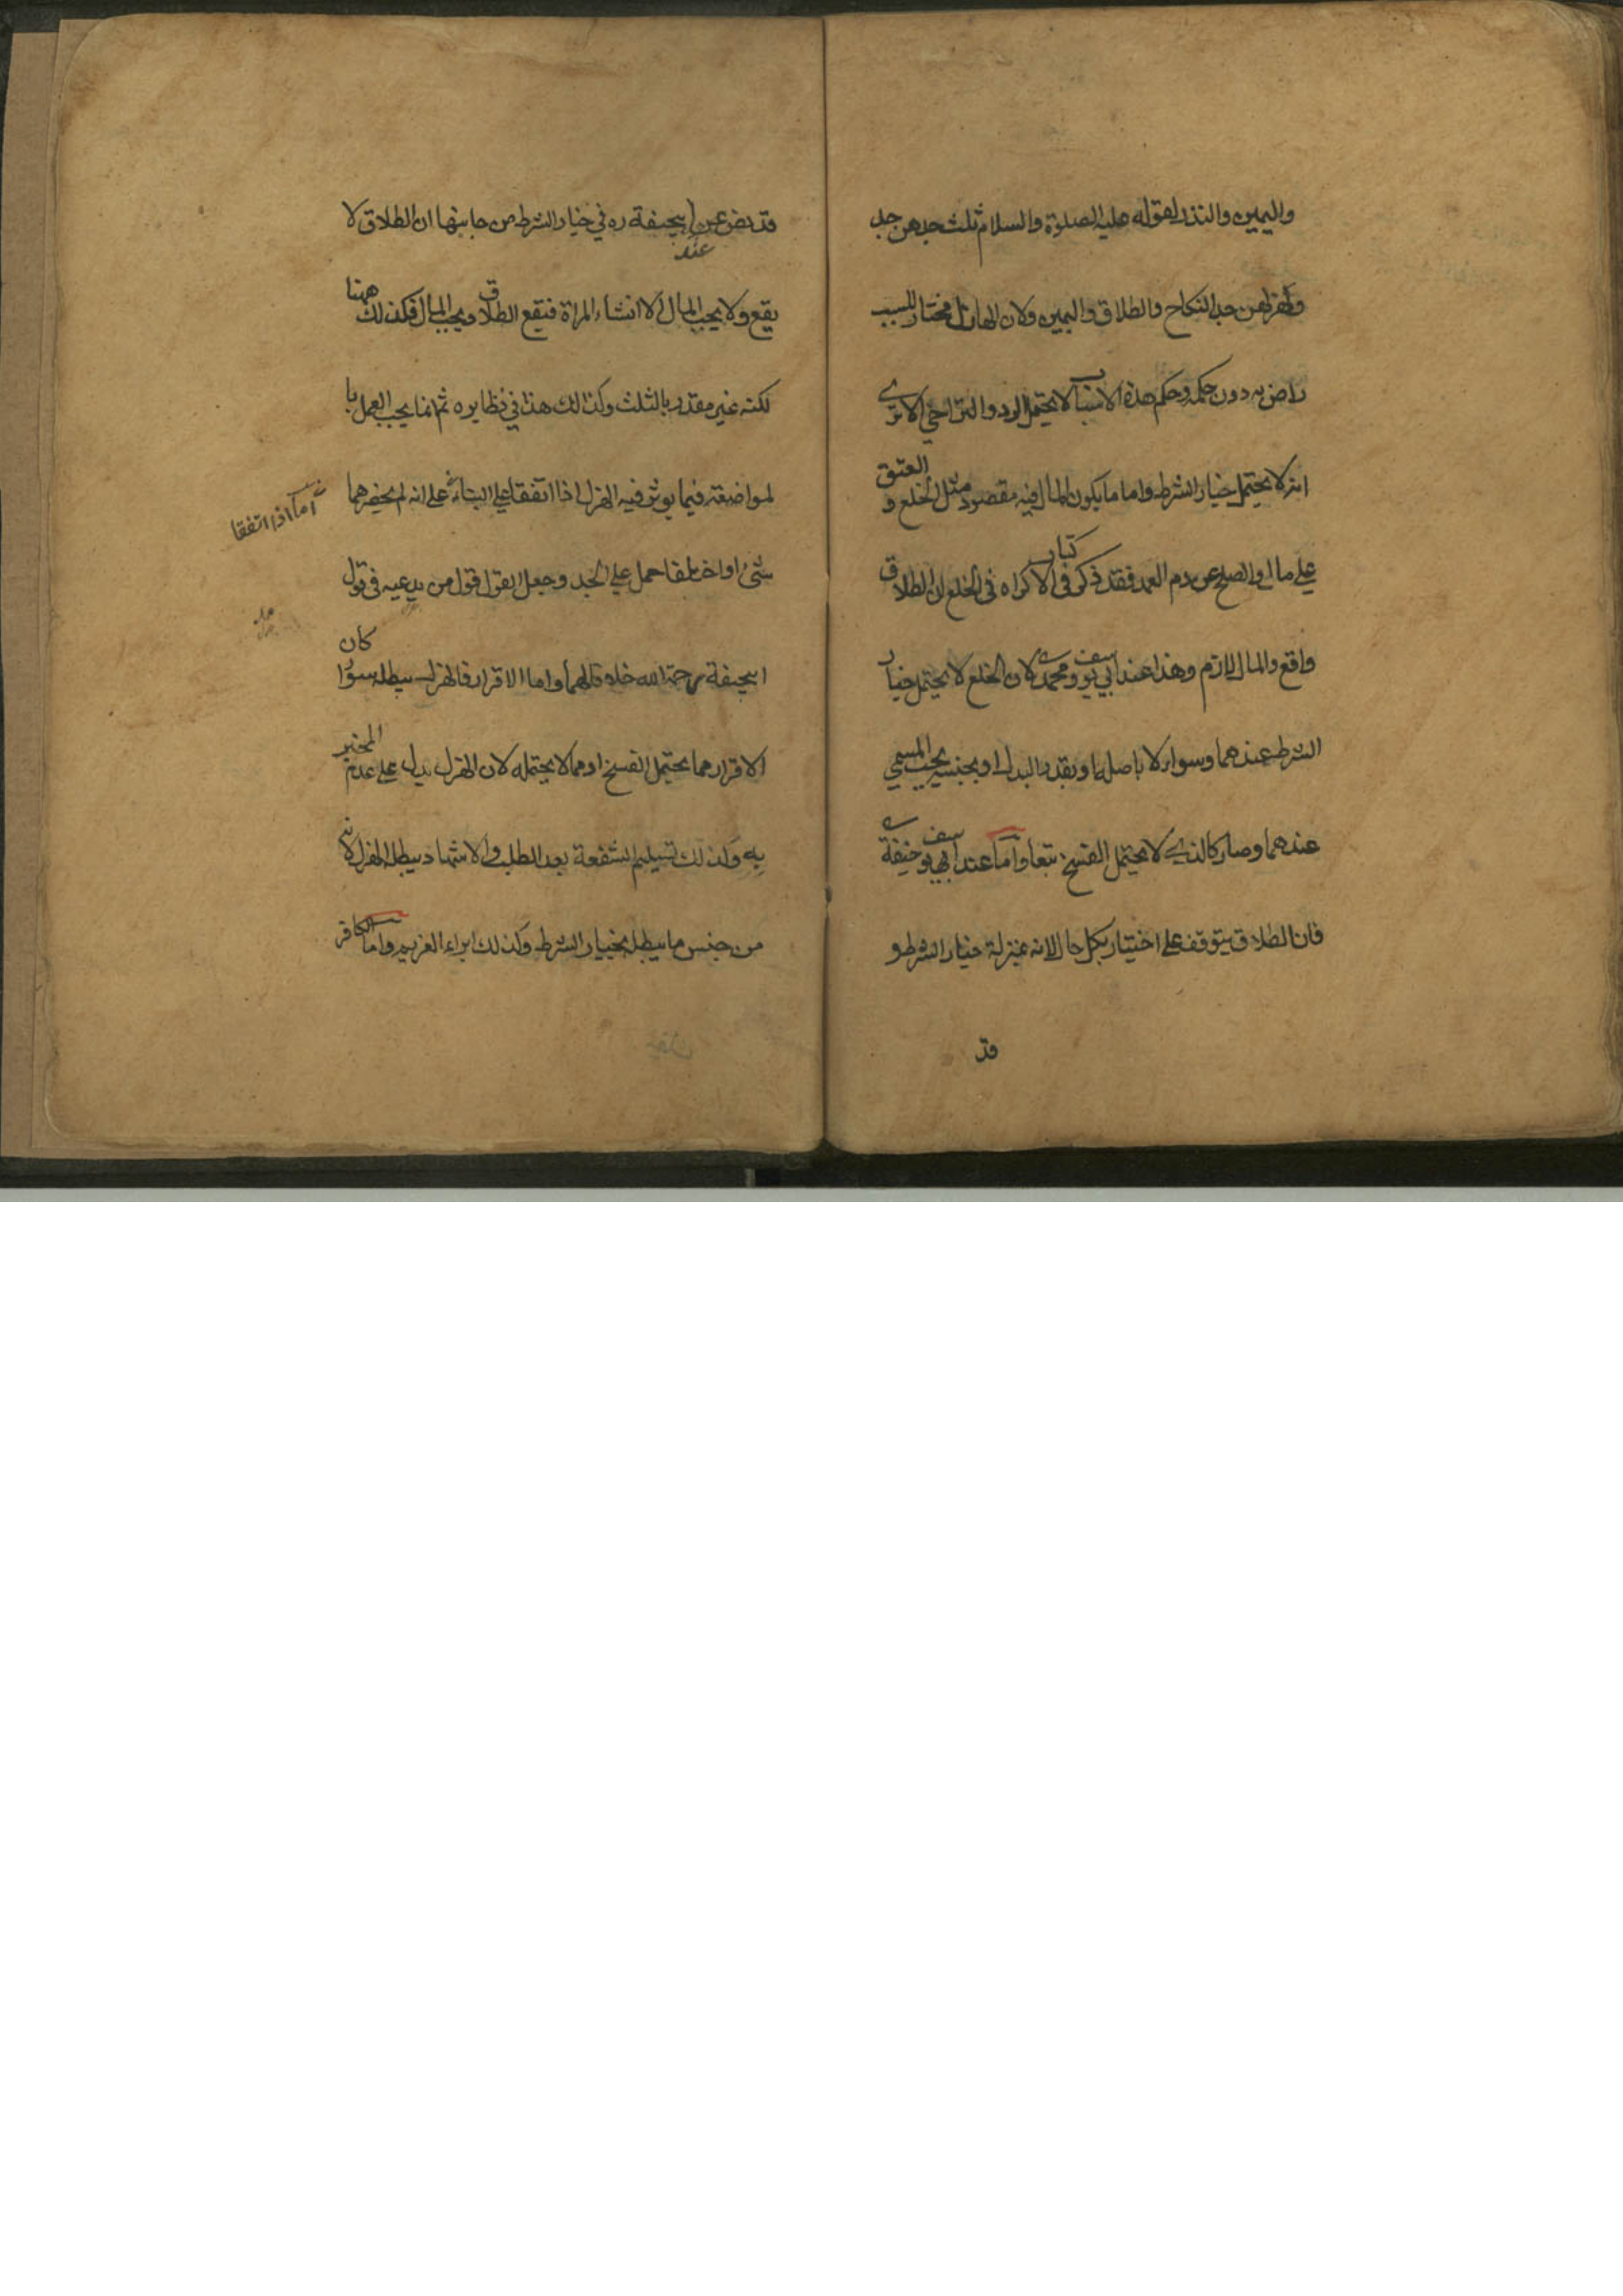 واليمين والنذر لقوله عليه الصلوة والسلام ثلث جدهن جد
وهزلهن جد النكاح والطلاق واليمين ولان الهازل مختار للسبب
راض به دون حكمه وحكم هذه الاسباب لا يحتمل الرد والتراخي الا ترى
انه لا يحتمل خيار الشرط واما ما يكون المال فيه مقصودا مثل الخلع و العتق
على مال والصلح عن دم العمد فقد ذكر في كتاب الاكراه في الخلع ان الطلاق
واقع والمال لازم وهذا عند ابي يوسف ومحمد لان الخلع لا يحتمل خيار
الشرط عندهما وسواء هزلا باصله او بقدر البدل او بجنسه يجب المسمى
عندهما وصار كالذي لا يحتمل الفسخ تبعا واما عند ابي حنيفة
فان الطلاق يتوقف على اختيار بكل حال لانه بمنزلة خيار الشرط و
قد
قد نص عن ابيحنيفة ره في خيار الشرط من جانبها ان الطلاق لا
يقع ولا يجب المال الا ان شاء المراة فيقع الطلاق ويجب المال فكذلك ههنا
لكنه غير مقدر بالثلث وكذلك هذا في نظايره ثم انما يجب العمل با
لمواضعة فيما يوثر فيه الهزل اذا اتفقا على البناء على انه لم يحضرهما
اما اذا اتفقا
شئ او اختلفا حمل على الجد وجعل القول قول من يدعيه في قول
ابيحنيفة رحمة الله خلافا لهما واما الاقرار فالهزل يبطله سواء كان
الاقرار مما يحتمل الفسخ او مما لا يحتمله لان الهزل يدل على عدم المخبر
به وكذلك تسليم الشفعة بعد الطلب والاشهاد يبطله الهزل لانه
من جنس ما يبطل بخيار الشرط وكذلك ابراء الغريم واما الكافر